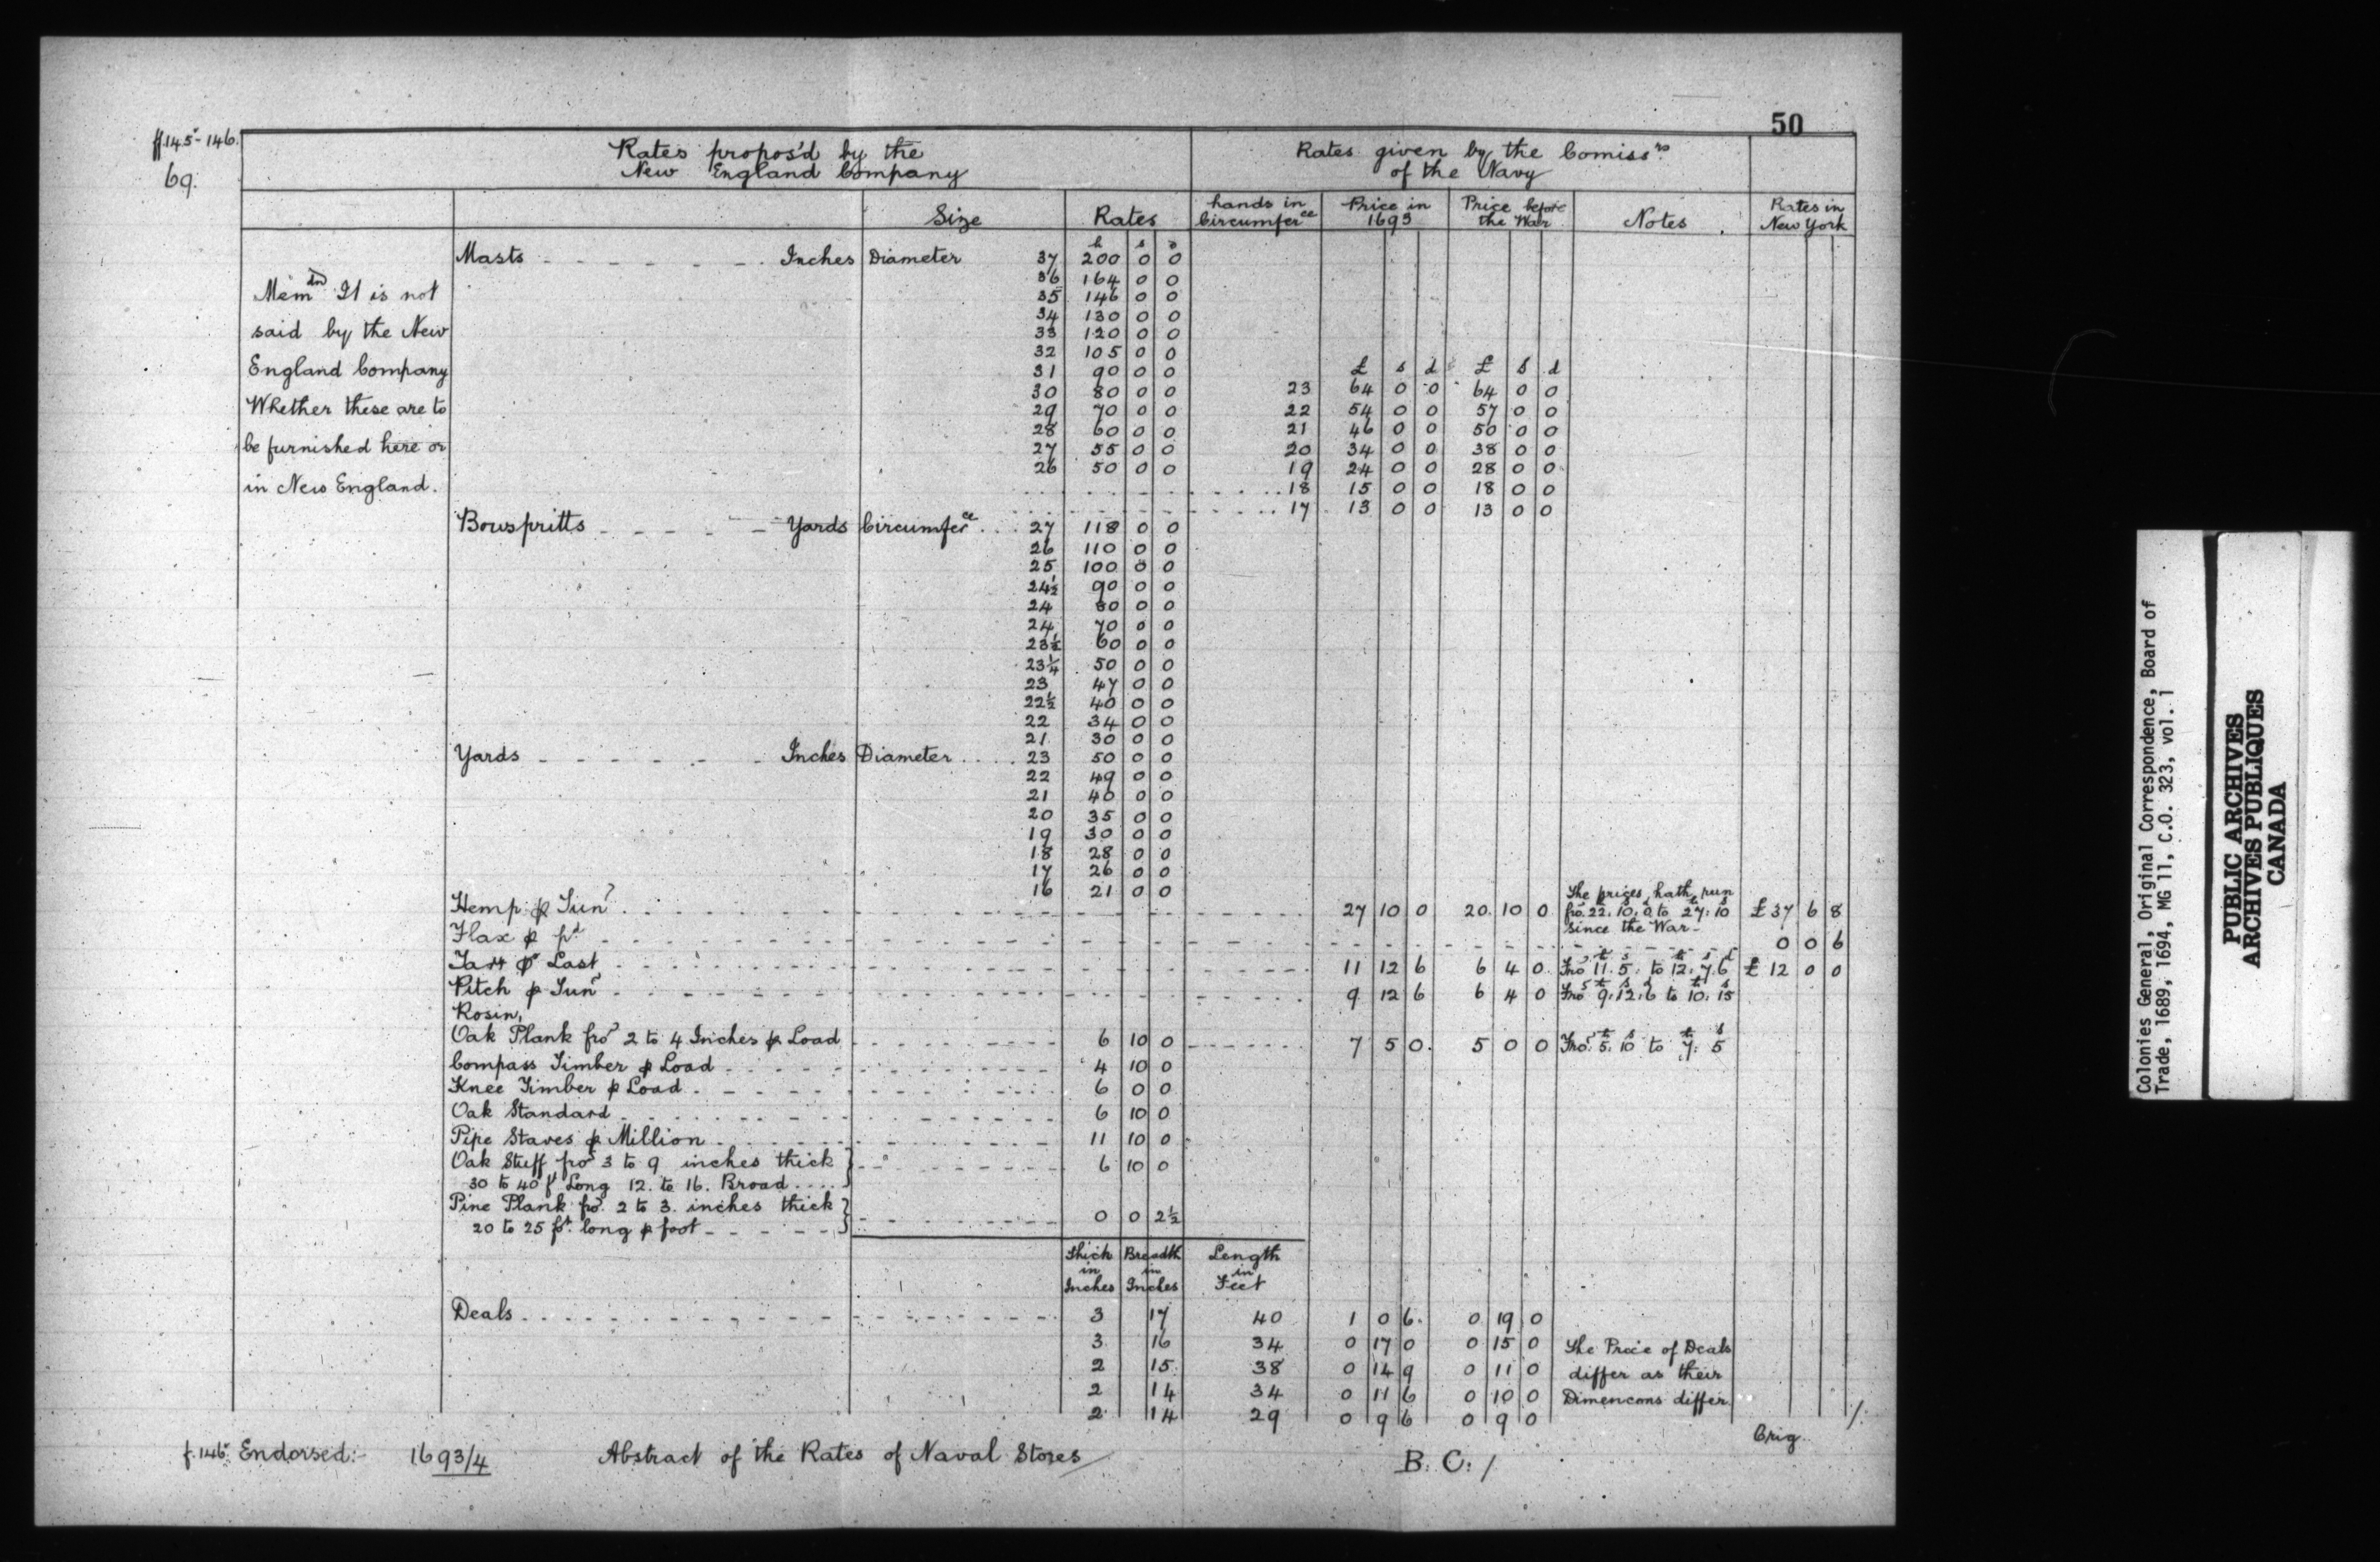 50
ff. 145-146.
69.
Rates propos'd by the New England Company
Rates given by the Comiss.rs of the Navy
Size
Rates
hands in Circumfer.ce
Price in 1693
Price before the War
Notes
Rates in New York
Mem.dm It is not
said by the New
England Company
Whether these are to
be furnished here or
in New England.
£ s d £ s d
Masts - - - - - - - Inches Diameter 37 200 0 0
36 164 0 0
35 146 0 0
34 130 0 0
33 120 0 0
32 105 0 0
31 90 0 0
30 80 0 0 23 64 0 0 64 0 0
29 70 0 0 22 54 0 0 57 0 0
28 60 0 0 21 46 0 0 50 0 0
27 55 0 0 20 34 0 0 38 0 0
26 50 0 0 19 24 0 0 28 0 0
18 15 0 0 18 0 0
17 13 0 0 13 0 0
Bowspritts - - - - - Yards Circumfer.ce 27 118 0 0
26 110 0 0
25 100 0 0
24½ 90 0 0
24 80 0 0
24 70 0 0
23½ 60 0 0
23¼ 50 0 0
23 47 0 0
22½ 40 0 0
22 34 0 0
21 30 0 0
Yards - - - - - - Inches Diameter 23 50 0 0
22 49 0 0
21 40 0 0
20 35 0 0
19 30 0 0
18 28 0 0
17 26 0 0
16 21 0 0
Hemp ⅌ Tun 27 10 0 20 10 0 The prices hath run fro. 22. 10. 0 to 27. 10 since the War - £37 6 8
Flax ⅌ 0 0 6
Tarr ⅌ Last 11 12 6 6 4 0 Fro 11. 5. to 12. 7. 6 £12 0 0
Pitch ⅌ Tun 9 12 6 6 4 0 Fro 9. 12. 6 to 10. 15
Rosin,
Oak Plank fro 2 to 4 Inches ⅌ Load 6 10 0 7 5 0 5 0 0 Fro. 5. 10 to 7. 5
Compass Timber ⅌ Load 4 10 0
Knee Timber ⅌ Load 6 0 0
Oak Standard 6 10 0
Pipe Staves ⅌ Million 11 10 0
Oak Stuff fro 3 to 9 inches thick
30 to 40 f.t Long 12. to 16. Broad 6 10 0
Pine Plank fro. 2 to 3. inches thick
20 to 25 fo.t long ⅌ foot 0 0 2½
Thick in Inches Breadth in Inches Length in Feet
Deals 3 17 40 1 0 6 0 19 0
3 16 34 0 17 0 0 15 0 The Price of Deals
2 15 38 0 14 9 0 11 0 differ as their
2 14 34 0 11 6 0 10 0 Dimencons differ
2 14 29 0 9 6 0 9 0
Orig.
f. 146. Endorsed:- 1693/4 Abstract of the Rates of Naval Stores B. C. /
Colonies General, Original Correspondence, Board of
Trade, 1689, 1694, MG 11, C.O. 323, vol. 1
PUBLIC ARCHIVES
ARCHIVES PUBLIQUES
CANADA